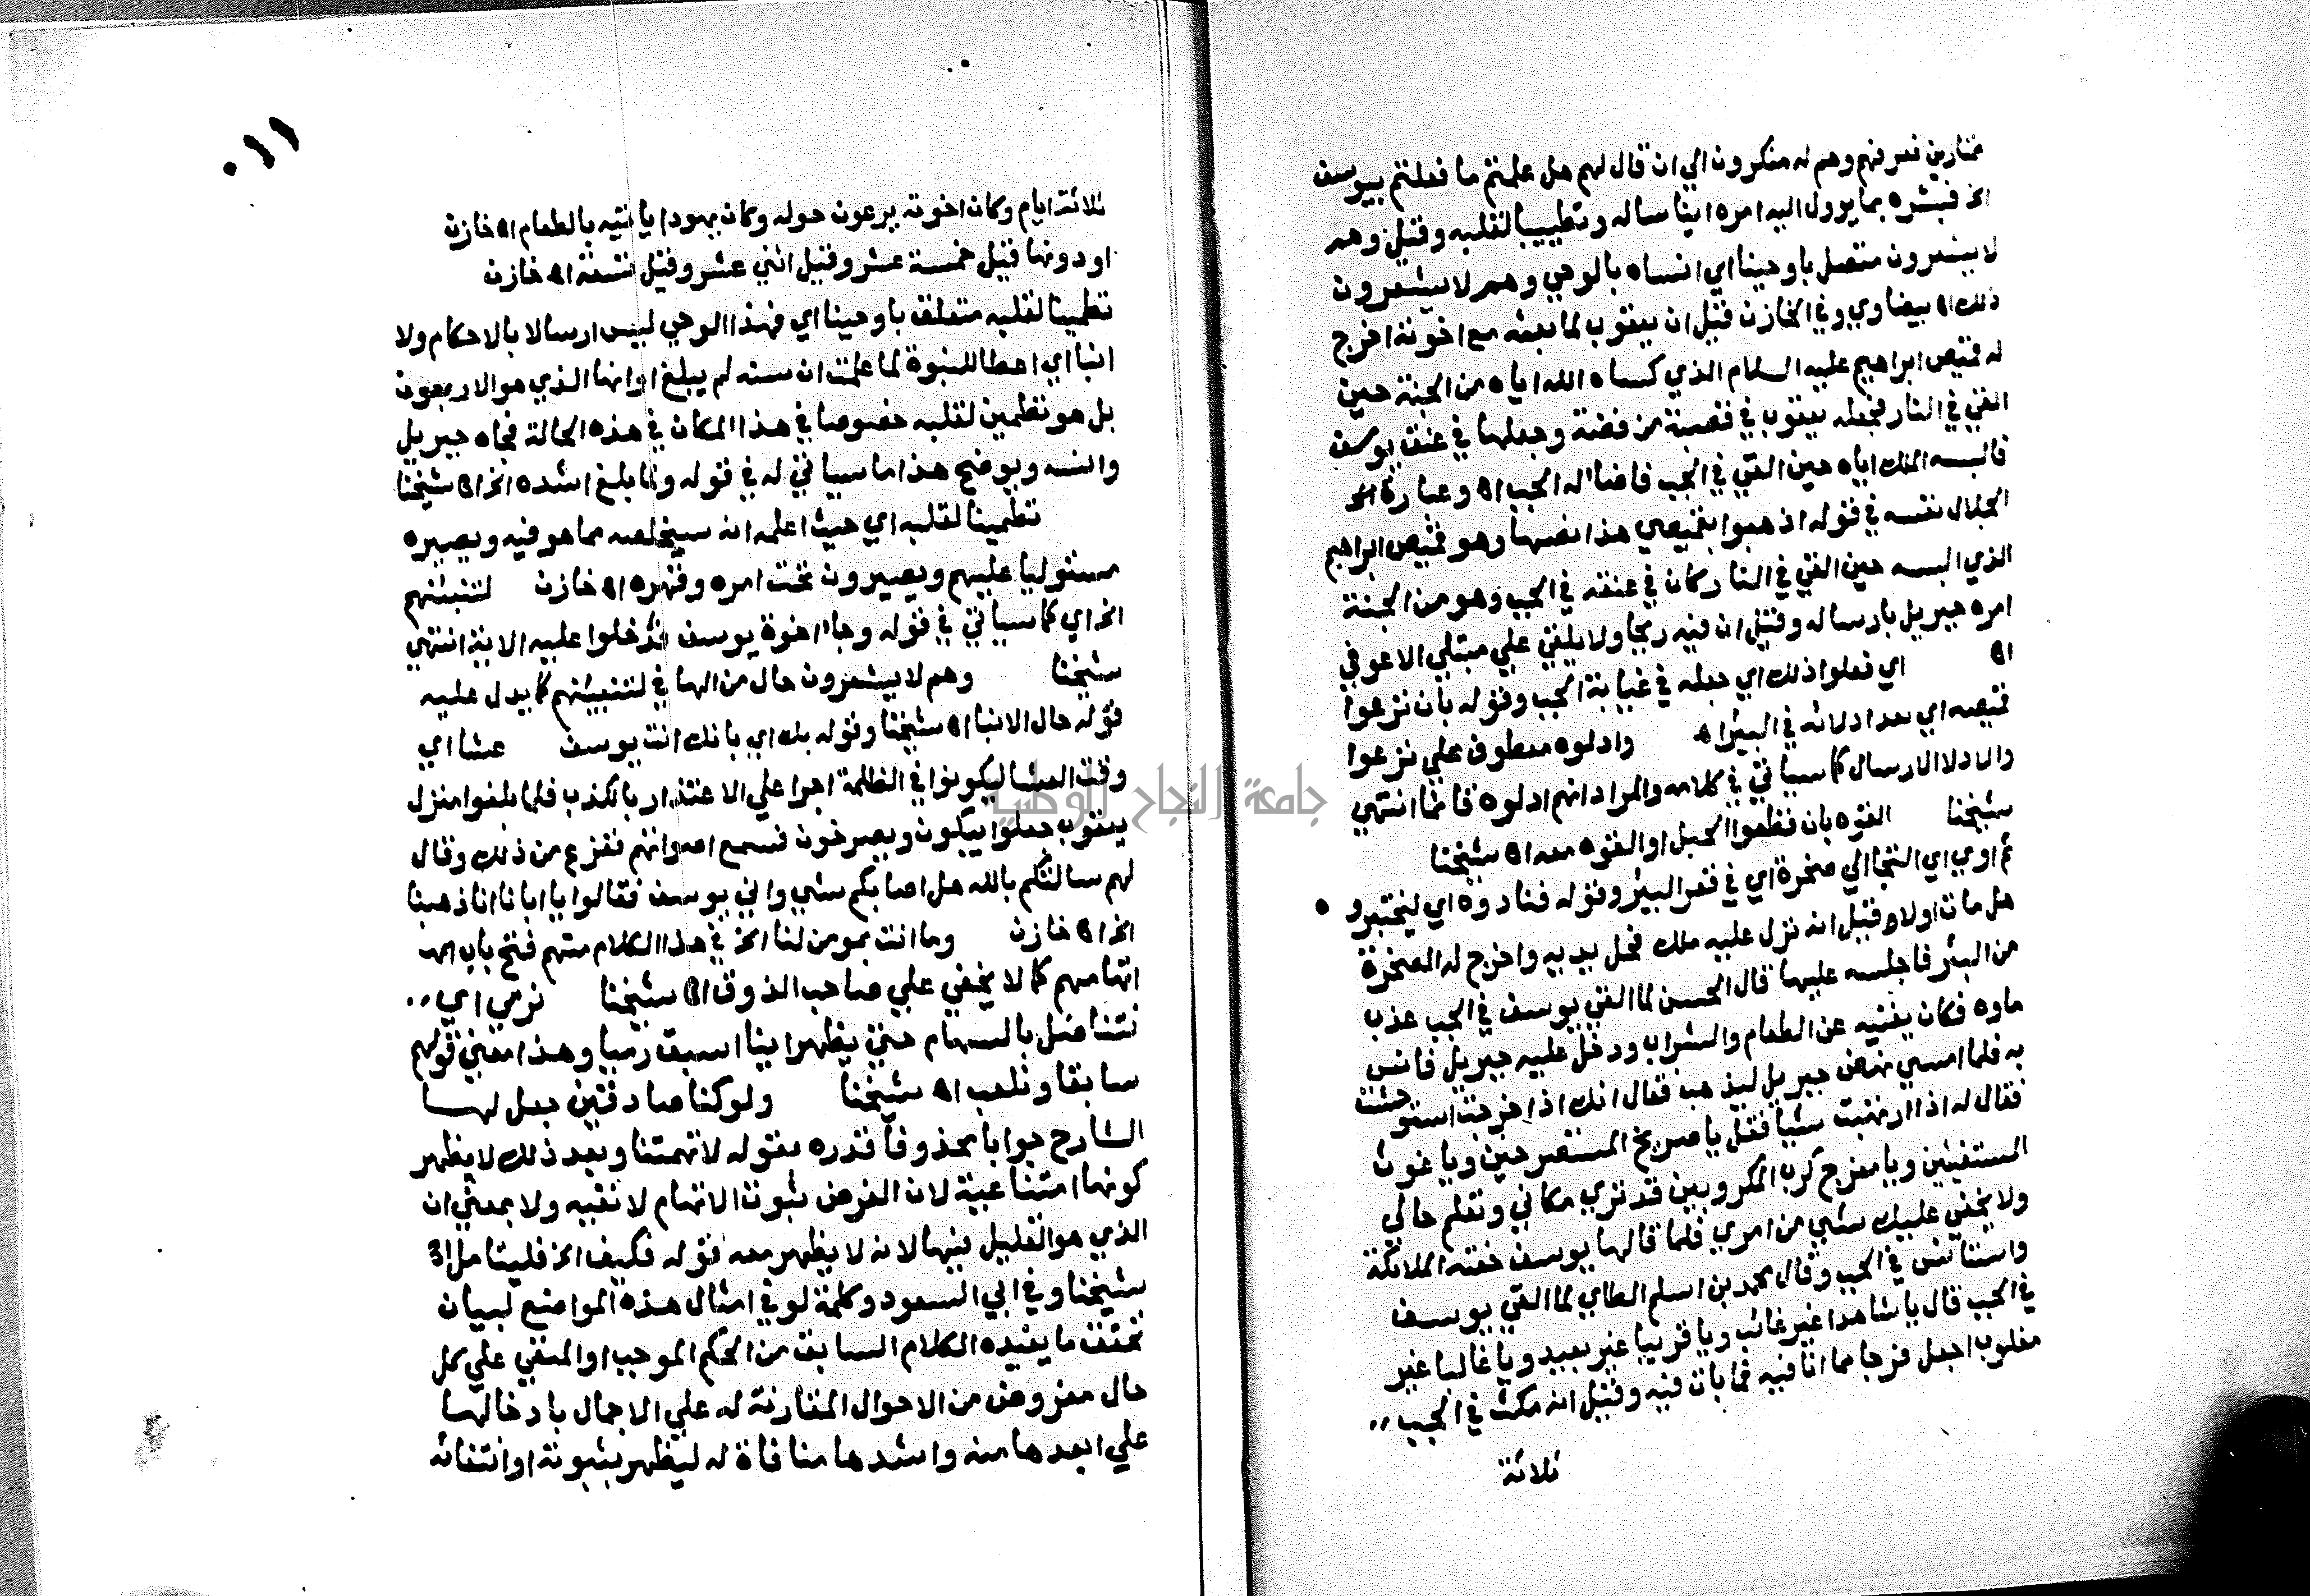 ممتارين فعرفهم وهم له منكرون الي ان قال لهم هل علمتم ما فعلتم بيوسف
الخ فبشره بما يؤول اليه امره ايناسا له وتطييبا لقلبه وقيل وهم
لا يشعرون متصل باوحينا اي انسناه بالوحي وهم لا يشعرون
ذلك اه بيضاوي وفي الخازن قيل ان يعقوب لما بعثه مع اخوته اخرج
له قميص ابراهيم عليه السلام الذي كساه الله اياه من الجنة حين
القي في النار فجعله يعقوب في قصبة من فضة وجعلها في عنق يوسف
فالبسه الملك اياه حين القي في الجب فاضا له الجب اه وعبارة
الجلال نفسه في قوله اذهبوا بقميصي هذا نصها وهو قميص ابراهيم
الذي البسه حين القي في النار كان في عنقه في الجب وهو من الجنة
امره جبريل بارساله وقيل ان فيه ريحا ولا يلقي علي مبتلي الا عوفي
اه اي فعلوا ذلك اي جعله في غيابة الجب وقوله بان نزعوا
قميصه اي بعد ادلائه في البئر اه وادلوه معطوف علي نزعوا
والادلا الارسال كما سياتي في كلامه والمراد انهم ادلوه قائما انتهي
شيخنا القوه بان قطعوا الحبل او القوه معه اه شيخنا
ثم اوي اي التجا الي صخرة اي في قعر البئر وقوله فنادوه اي ليختبروه
هل مات اولا وقيل انه نزل عليه ملك فحل يديه واخرج له الصخرة
من البئر فاجلسه عليها قال الحسن لما القي يوسف في الجب عذب
ماوه فكان يغنيه عن الطعام والشراب ودخل عليه جبريل فانس
به فلما امسي نهض جبريل ليذهب فقال انك اذا خرجت استوحشت
فقال له اذا رهبت شيا فقل يا صريخ المستصرخين ويا غوث
المستغيثين ويا مفرج كرب المكروبين قد تري مكاني وتعلم حالي
ولا يخفي عليك شي من امري فلما قالها يوسف حفته الملائكة
واستانس في الجب وقال محمد بن اسلم الطاي لما القي يوسف
في الجب قال يا شاهدا غير غائب ويا قريبا غير بعيد ويا غالبا غير
مغلوب اجعل فرجا مما انا فيه فما بات فيه وقيل انه مكث في الجب
ثلاثة
١١٠
ثلاثة ايام وكان اخوته يرعون حوله وكان يهودا ياتيه بالطعام اه خازن
اودونها قيل خمسة عشر وقيل اثني عشر وقيل تسعة اه خازن
تطمينا لقلبه متعلق باوحينا اي فهذا الوحي ليس ارسالا بالاحكام ولا
انبا اي اعطا للنبوة لما علمت ان سنه لم يبلغ اوانها الذي هو الاربعون
بل هو تطمين لقلبه خصوصا في هذا المكان في هذه الحالة فجاه جبريل
وانسه ويوضح هذا ما سياتي له في قوله ولما بلغ اشده الخ اه شيخنا
تطمينا لقلبه اي حيث اعلمه انه سيخلصه مما هو فيه ويصيره
مستوليا عليهم ويصيرون تحت امره وقهره اه خازن لتنبئنهم
الخ اي كما سياتي في قوله وجا اخوة يوسف فدخلوا عليه الاية انتهي
شيخنا وهم لا يشعرون حال من الها في لتنبئنهم كما يدل عليه
قوله حال الانبا اه شيخنا وقوله بك اي بانك انت يوسف عشا اي
وقت العشا ليكونوا في الظلمة اجرا علي الاعتذار بالكذب فلما بلغوا منزل
يعقوب جعلوا يبكون ويصرخون فسمع اصواتهم ففزع من ذلك وقال
لهم سالتكم بالله هل اصابكم شي واني يوسف فقالوا يا ابانا انا ذهبنا
الخ اه خازن وما انت بمومن لنا الخ في هذا الكلام منهم فتح باب
اتهامهم كما لا يخفي علي صاحب الذوق اه شيخنا نرمي اي
نتناضل بالسهام حتي يظهر اينا اسبق رميا وهذا معني قولهم
سابقا ونلعب اه شيخنا ولو كنا صادقين جعل لها
الشارح جوابا محذوفا قدره بقوله لاتهمتنا وبعد ذلك لا يظهر
كونها امتناعية لان الغرض ثبوت الاتهام لا نفيه ولا بمعني ان
الذي هو القليل فيها لانه لا يظهر معه قوله فكيف الخ فليتامل اه
شيخنا وفي ابي السعود وكلمة لو في امثال هذه المواضع لبيان
تحقق ما يفيده الكلام السابق من الحكم الموجب او المنفي علي كل
حال مفروض من الاحوال المقارنة له علي الاجمال بادخالها
علي ابعدها منه واشدها منافاة له ليظهر بثبوته او انتفائه
جامعة النجاح الوطنية